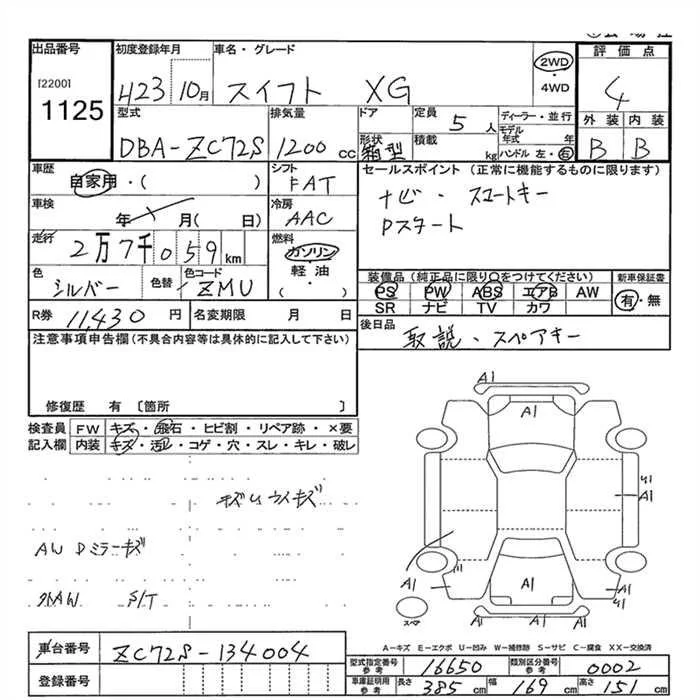 出品番号 初度登録年月 車名・グレード 評価点
[2200]
1125
H23 10月 スイフト XG 2WD 4
・
4WD
型式 排気量 ドア 定員 5人 ディーラー・並行 外装 内装
DBA-ZC72S 1200cc 形状 箱型 積載 kg モデル年式 年 B B
ハンドル 左・右
車歴 シフト セールスポイント (正常に機能するものに限ります)
自家用・( ) FAT ナビ・スマートキー
車検 冷房 Pスタート
年 月(日) AAC
走行 燃料
2万7千059km ガソリン
・
軽油
色 色替 色コード ・
シルバー ZMU ( )
装備品 (純正品に限り○をつけてください) 新車保証書
PS PW ABS エアB AW 有・無
SR ナビ TV カワ
R券 11,430円 名変期限 月 日
後日品
取説・スペアキー
注意事項申告欄(不具合内容等は具体的に記入して下さい)
修復歴 有 〔箇所 〕
検査員 FW キズ・飛石・ヒビ割・リペア跡・×要
記入欄 内装 キズ・汚レ・コゲ・穴・スレ・キレ・破レ
A1
A1
A1
A1
A1
A1
A1
A1
AW Dミラーキズ
S/T
スペア
A-キズ E-エクボ U-凹み W-補修跡 S-サビ C-腐食 XX-交換済
車台番号 ZC72S-134004
登録番号
型式指定番号 参考 16650 類別区分番号 参考 0002
車庫証明用 参考 長さ 385cm 幅 169cm 高さ 151cm